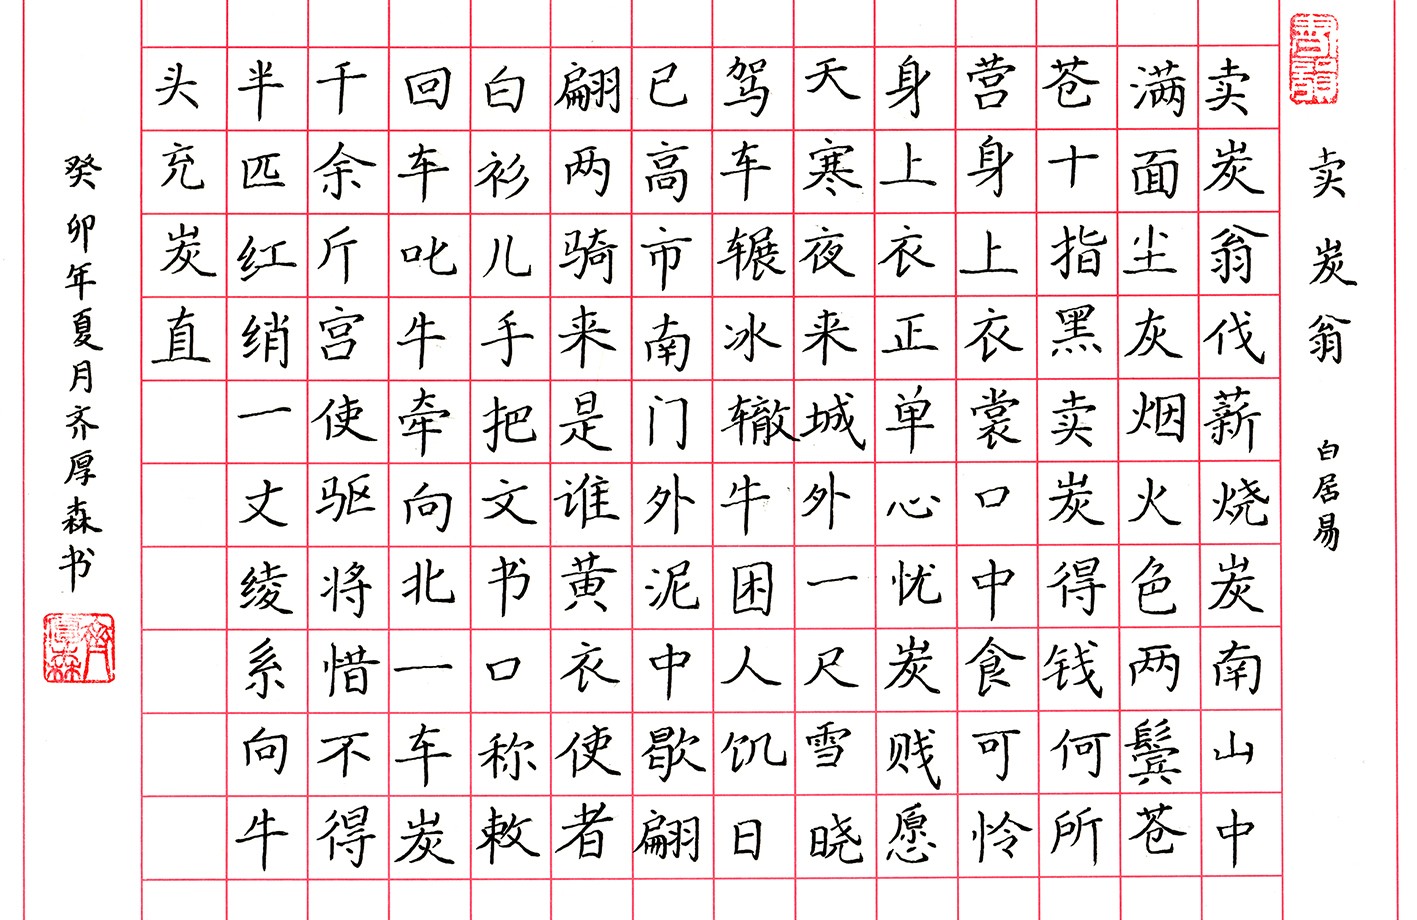 書韻
卖炭翁 白居易
卖炭翁伐薪烧炭南山中
满面尘灰烟火色两鬓苍
苍十指黑卖炭得钱何所
营身上衣裳口中食可怜
身上衣正单心忧炭贱愿
天寒夜来城外一尺雪晓
驾车辗冰辙牛困人饥日
已高市南门外泥中歇翩
翩两骑来是谁黄衣使者
白衫儿手把文书口称敕
回车叱牛牵向北一车炭
千余斤宫使驱将惜不得
半匹红绡一丈绫系向牛
头充炭直
癸卯年夏月齐厚森书
齊厚森